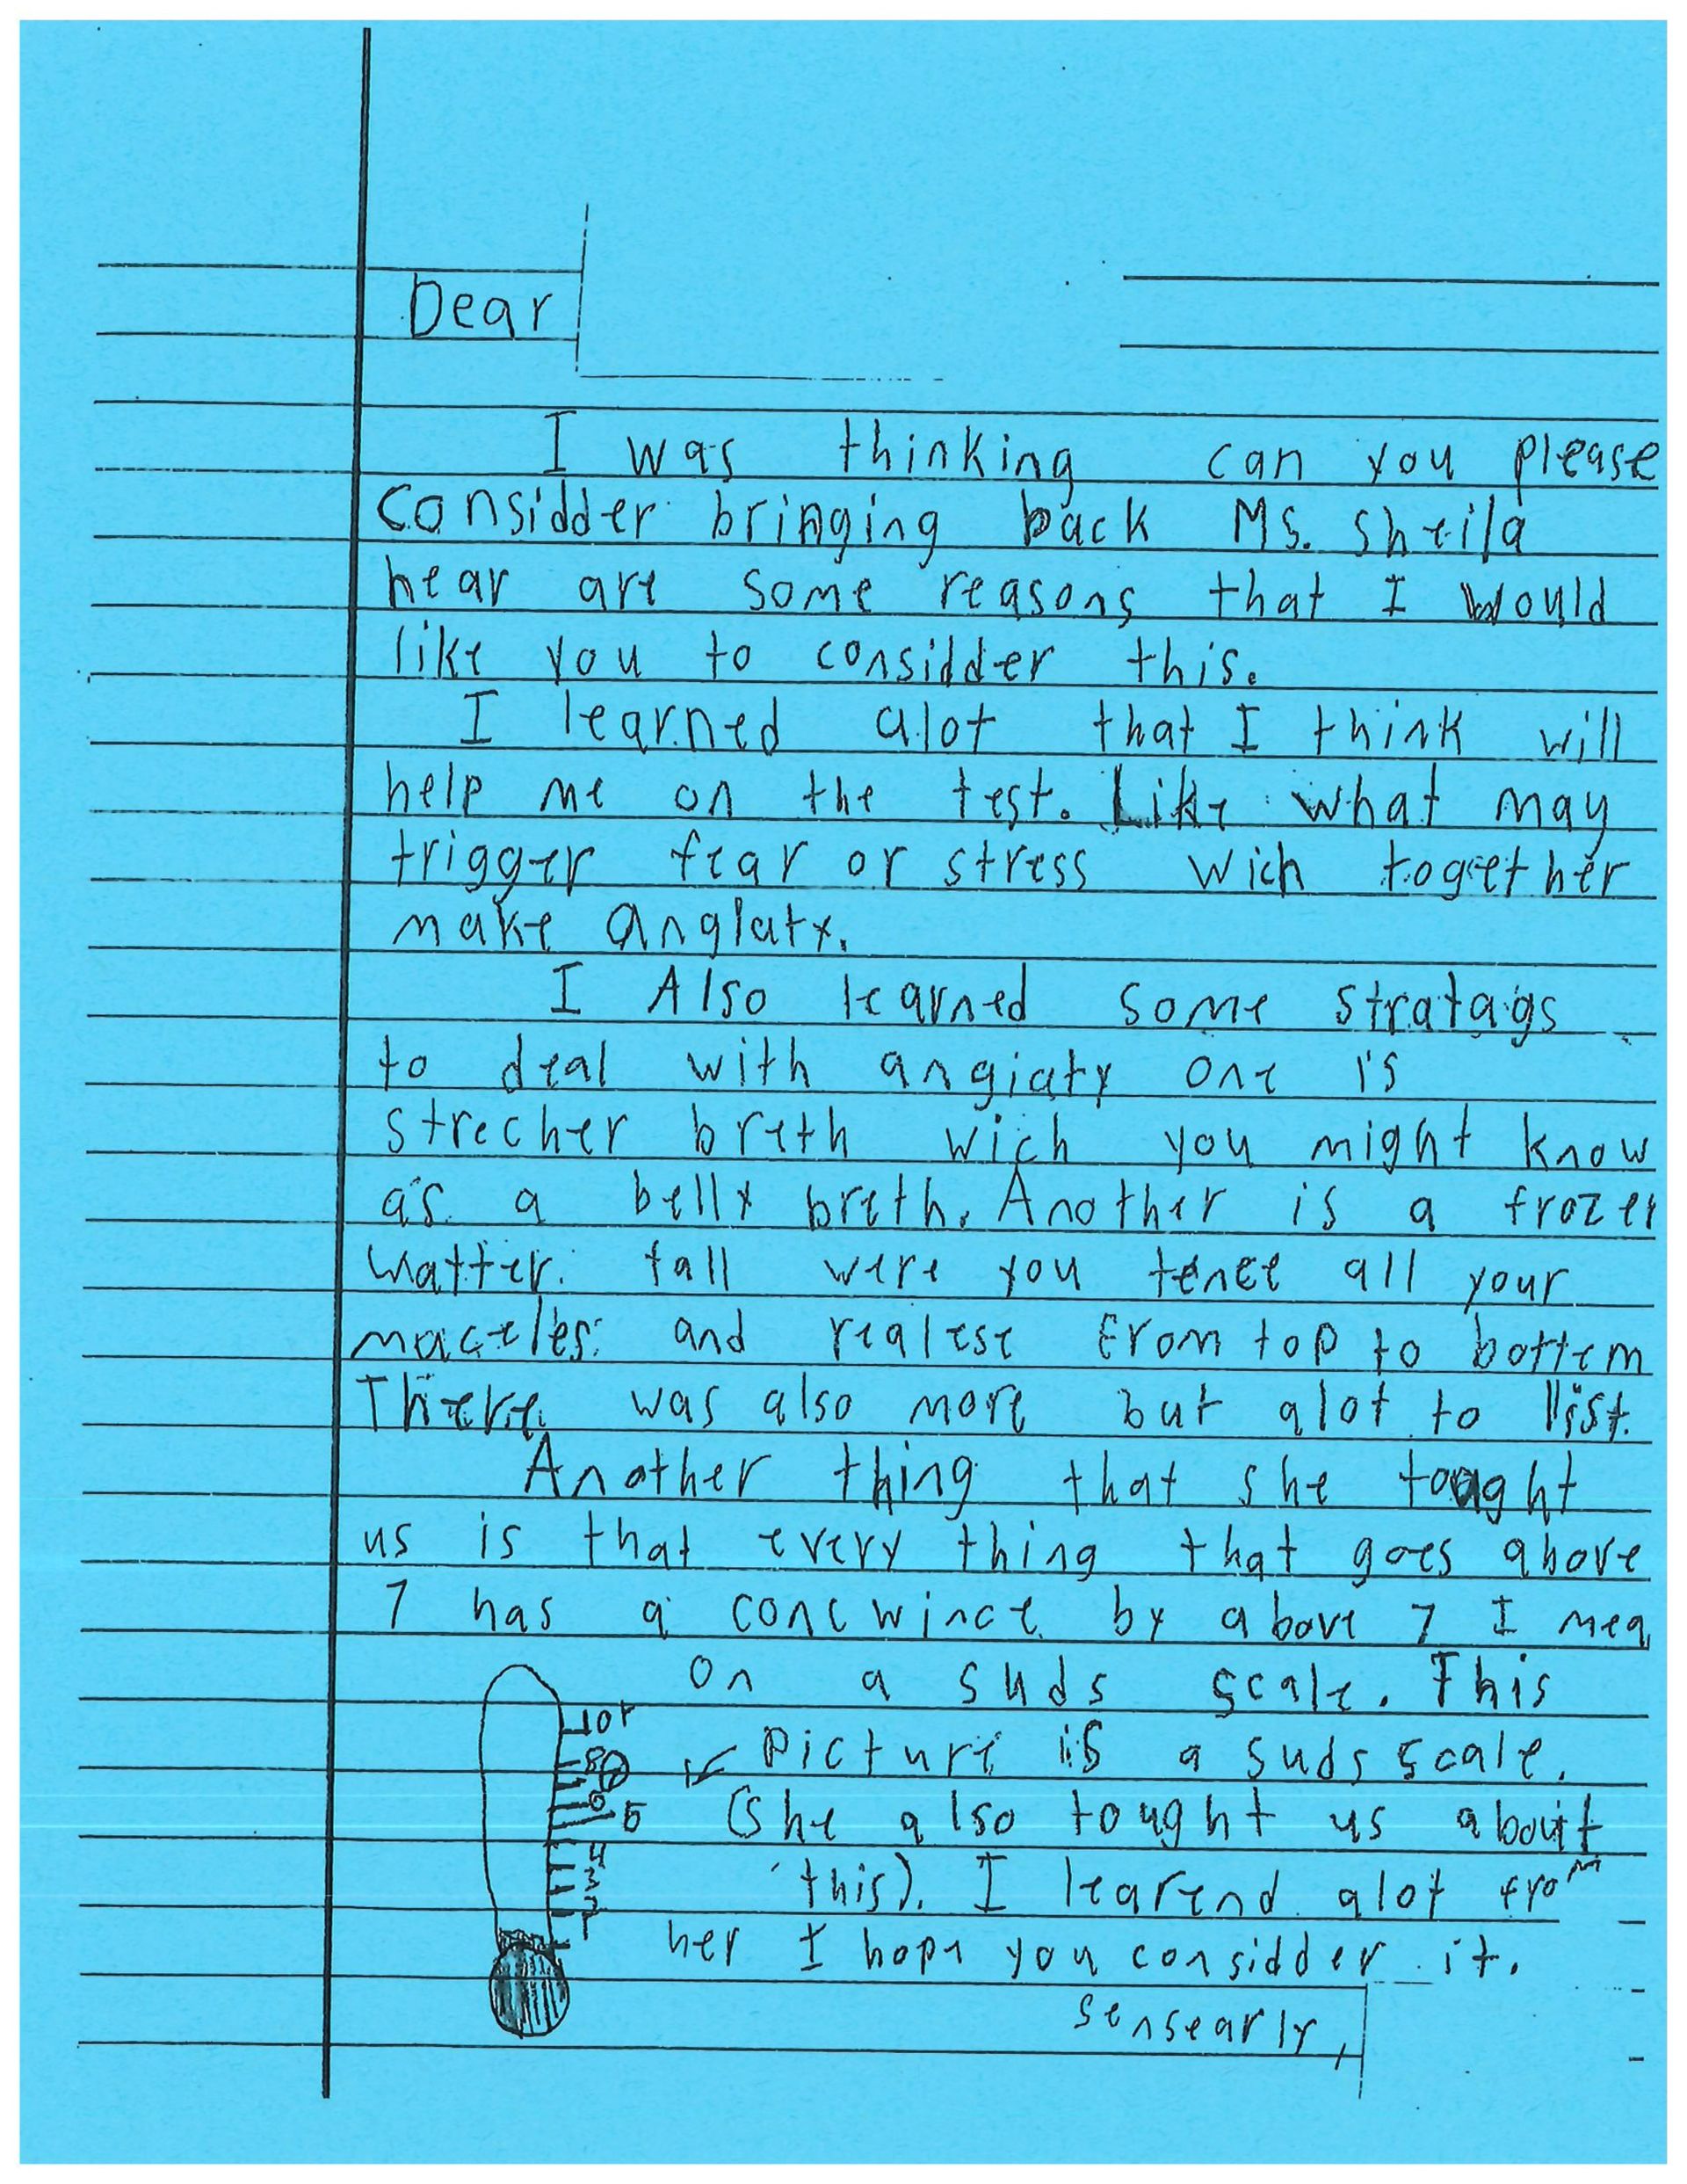 Dear
I was thinking can you please
considder bringing back Ms. sheila
hear are some reasons that I would
like you to considder this.
I learned alot that I think will
help me on the test. Like what may
trigger fear or stress wich together
make anglaty.
I Also learned some stratags
to deal with angiaty one is
strecher breth wich you might know
as a belly breth. Another is a frozen
watter fall were you tence all your
maceles and realese from top to bottem
There was also more but alot to list.
Another thing that she tought
us is that every thing that goes above
7 has a concwince by above 7 I mea
on a suds scale. This
10
8
Picture is a suds scale.
6
5
(she also tought us about
4
3
this). I learend alot from
2
1
her I hope you considder it.
sensearly,